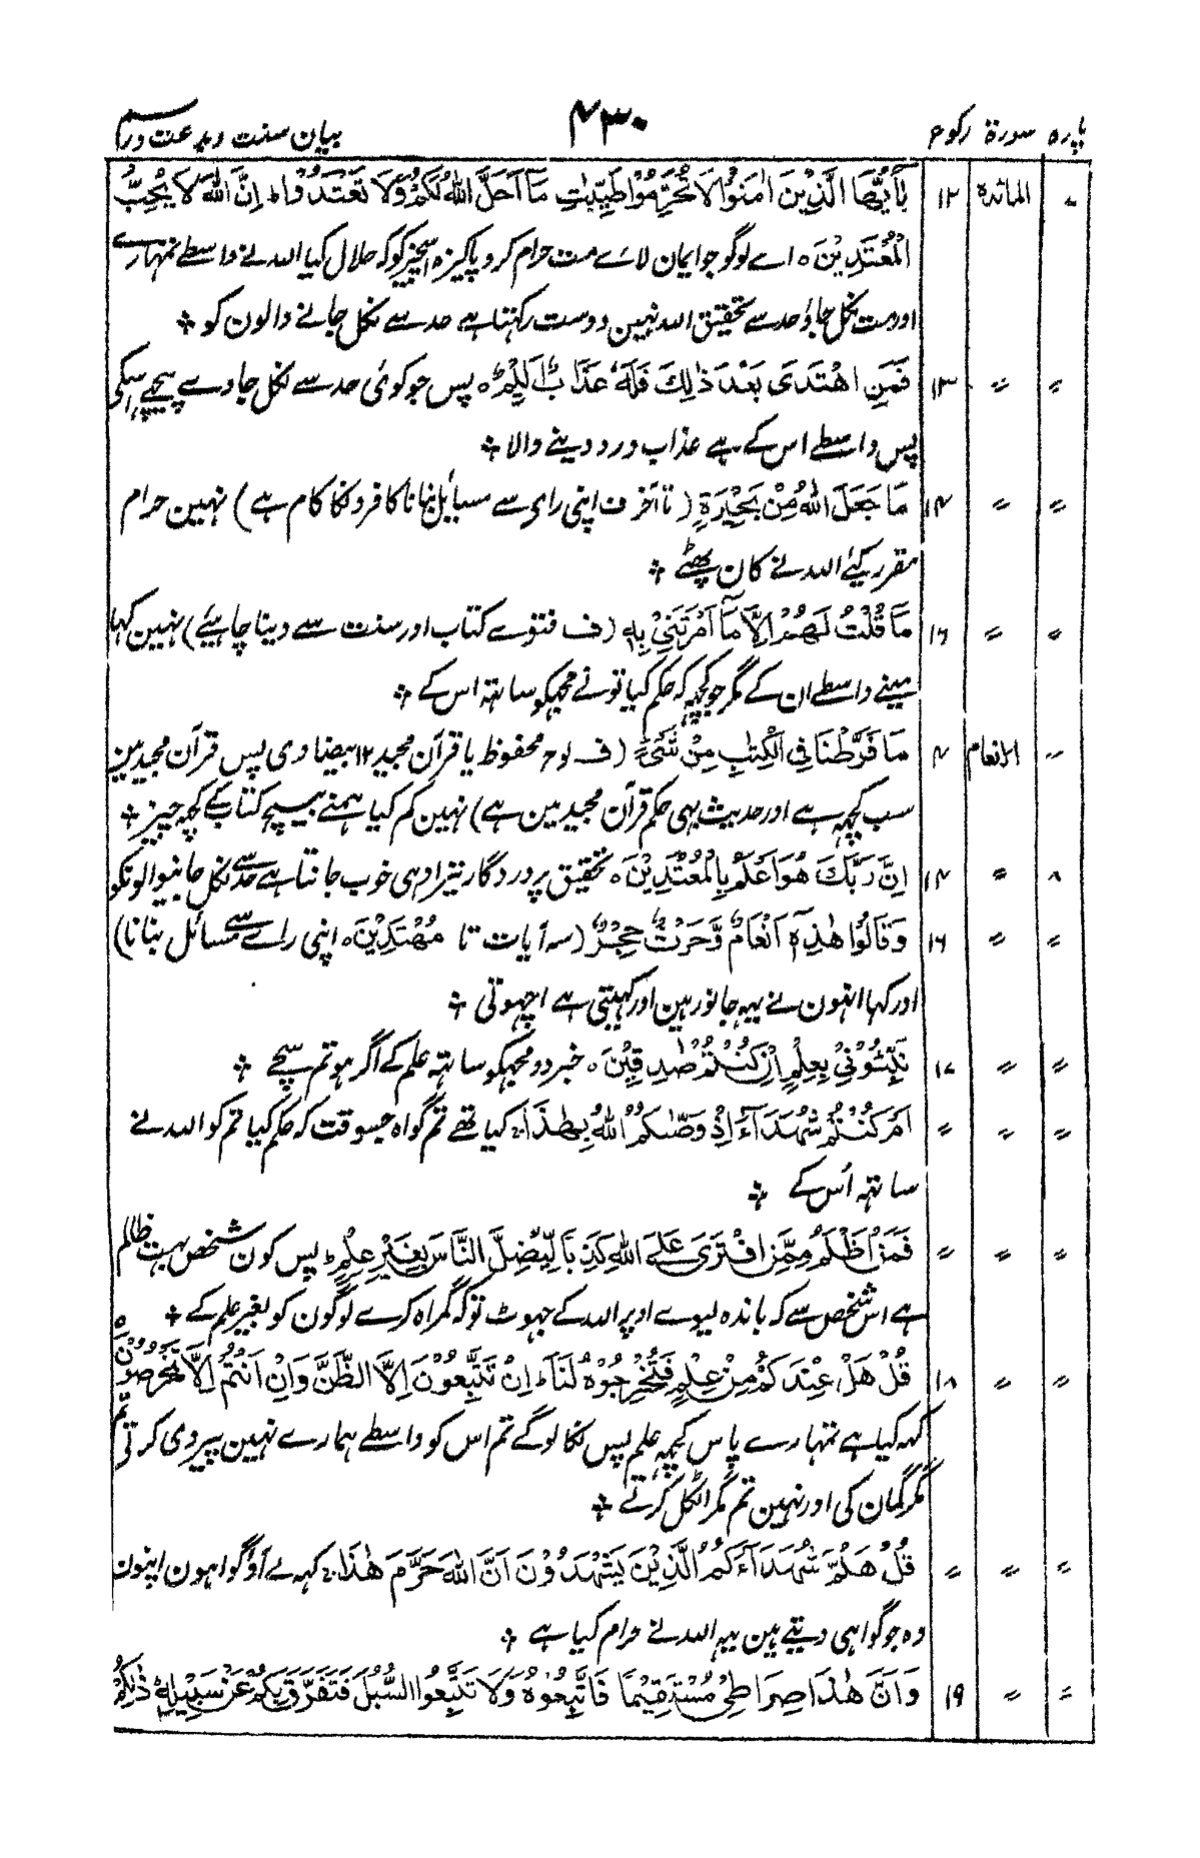 پارہ سورة رکوع ۴۳۰ بیان سنت و بدعت و رسم
۷ المائدة ۱۲ يٰٓاَيُّهَا الَّذِيْنَ اٰمَنُوْا لَا تُحَرِّمُوْا طَيِّبٰتِ مَآ اَحَلَّ اللّٰهُ لَكُمْ وَلَا تَعْتَدُوْا ط اِنَّ اللّٰهَ لَا يُحِبُّ
الْمُعْتَدِيْنَ ه اے لوگو جو ایمان لائے مت حرام کرو پاکیزہ اسچیز کو کہ حلال کیا اللہ نے واسطے تمہارے
اور مت نکل جاؤ حد سے تحقیق اللہ نہین دوست رکہتا ہے حد سے نکل جانے والون کو ÷
〃 〃 ۱۳ فَمَنِ اهْتَدَى بَعْدَ ذٰلِكَ فَلَهٗ عَذَابٌ اَلِيْمٌ ه پس جو کوئی حد سے نکل جاوے پیچھے اسکی
پس واسطے اس کے ہے عذاب درد دینے والا ÷
〃 〃 ۱۴ مَا جَعَلَ اللّٰهُ مِنْۢ بَحِيْرَةٍ (تا آخر ف اپنی رای سے مسایل بنانا کافرونکا کام ہے) نہین حرام
مقرر کیئے اللہ نے کان پھٹے ÷
〃 〃 ۱۶ مَا قُلْتُ لَهُمْ اِلَّا مَآ اَمَرْتَنِيْ بِهٖ (ف فتوے کتاب اور سنت سے دینا چاہیئے) نہین کہا
مینے واسطے ان کے مگر جو کچہہ کہ حکم کیا تونے مجہکو ساتہہ اس کے ÷
〃 الانعام ۴ مَا فَرَّطْنَا فِي الْكِتٰبِ مِنْ شَيْءٍ (ف لوح محفوظ یا قرآن مجید ۱۲ بیضاوی پس قرآن مجید مین
سب کچہہ ہے اور حدیث بہی حکم قرآن مجید مین ہے) نہین کم کیا ہمنے بیچ کتاب کے کچہ چیز ÷
۸ 〃 ۱۴ اِنَّ رَبَّكَ هُوَ اَعْلَمُ بِالْمُعْتَدِيْنَ ه تحقیق پروردگار تیرا وہی خوب جانتا ہے حد سے نکل جانیوالونکو
〃 〃 ۱۶ وَقَالُوْا هٰذِهٖٓ اَنْعَامٌ وَّحَرْثٌ حِجْرٌ (سہ آیات تا مُهْتَدِيْنَ ه اپنی رائے سے مسائل بنانا)
اور کہا انہون نے یہہ جانور ہین اور کہیتی ہے اچہوتی ÷
〃 〃 ۱۷ نَبِّئُوْنِيْ بِعِلْمٍ اِنْ كُنْتُمْ صٰدِقِيْنَ ه خبر دو مجہکو ساتہہ علم کے اگر ہو تم سچے ÷
〃 〃 〃 اَمْ كُنْتُمْ شُهَدَآءَ اِذْ وَصّٰىكُمُ اللّٰهُ بِهٰذَا ج کیا تھے تم گواہ جسوقت کہ حکم کیا تم کو اللہ نے
ساتہہ اُس کے ÷
〃 〃 〃 فَمَنْ اَظْلَمُ مِمَّنِ افْتَرَى عَلَى اللّٰهِ كَذِبًا لِّيُضِلَّ النَّاسَ بِغَيْرِ عِلْمٍ ط پس کون شخص بہت ظالم
ہے اس شخص سے کہ باندہ لیوے اوپر اللہ کے جہوٹ تو کہ گمراہ کرے لوگون کو بغیر علم کے ÷
〃 〃 ۱۸ قُلْ هَلْ عِنْدَكُمْ مِّنْ عِلْمٍ فَتُخْرِجُوْهُ لَنَا ط اِنْ تَتَّبِعُوْنَ اِلَّا الظَّنَّ وَاِنْ اَنْتُمْ اِلَّا تَخْرُصُوْنَ ه
کہہ کیا ہے تمہارے پاس کچہہ علم پس نکالو گے تم اس کو واسطے ہمارے نہین پیروی کرتی تم
مگر گمان کی اور نہین تم مگر اٹکل کرتے ÷
〃 〃 〃 قُلْ هَلُمَّ شُهَدَآءَكُمُ الَّذِيْنَ يَشْهَدُوْنَ اَنَّ اللّٰهَ حَرَّمَ هٰذَا ج کہہ لے آؤ گواہون اپنون
وہ جو گواہی دیتے ہین یہہ اللہ نے حرام کیا ہے ÷
〃 〃 ۱۹ وَاَنَّ هٰذَا صِرَاطِيْ مُسْتَقِيْمًا فَاتَّبِعُوْهُ وَلَا تَتَّبِعُوا السُّبُلَ فَتَفَرَّقَ بِكُمْ عَنْ سَبِيْلِهٖ ط ذٰلِكُمْ